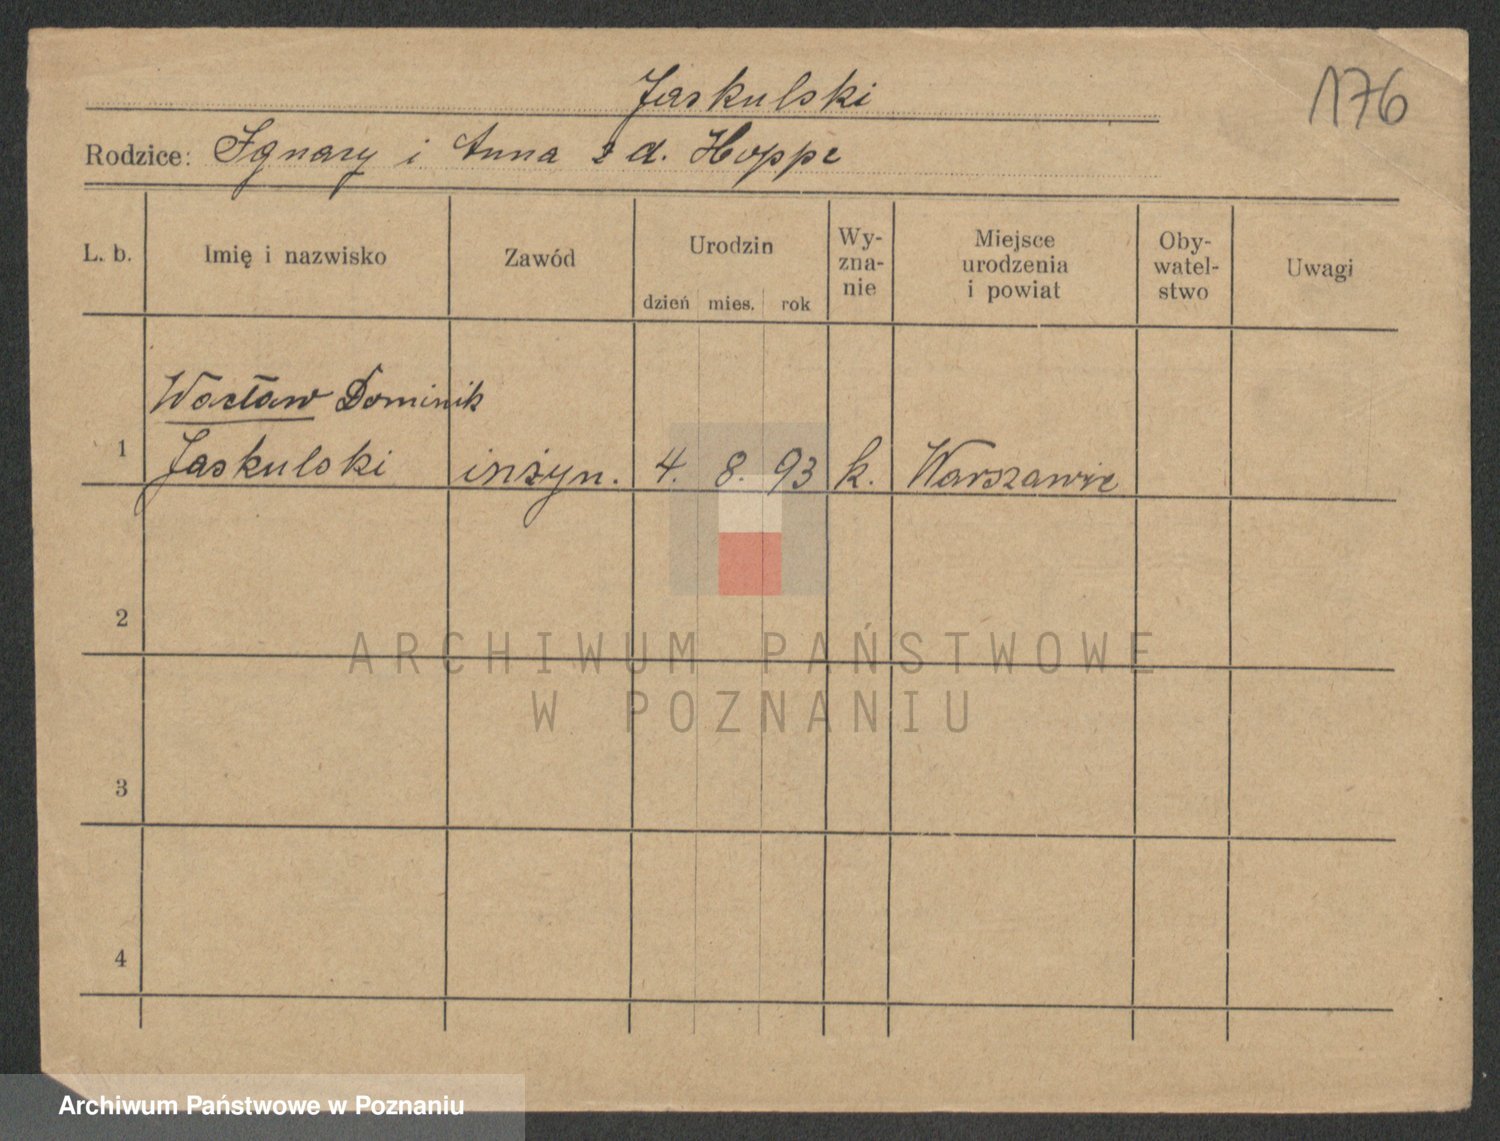 Jaskulski
176
Rodzice: Ignacy i Anna z d. Hoppe
L. b.
Imię i nazwisko
Zawód
Urodzin
dzień mies. rok
Wy-
zna-
nie
Miejsce
urodzenia
i powiat
Oby-
watel-
stwo
Uwagi
Wacław Dominik
1 Jaskulski inżyn. 4. 8. 93 k. Warszawie
2
ARCHIWUM PAŃSTWOWE
W POZNANIU
3
4
Archiwum Państwowe w Poznaniu